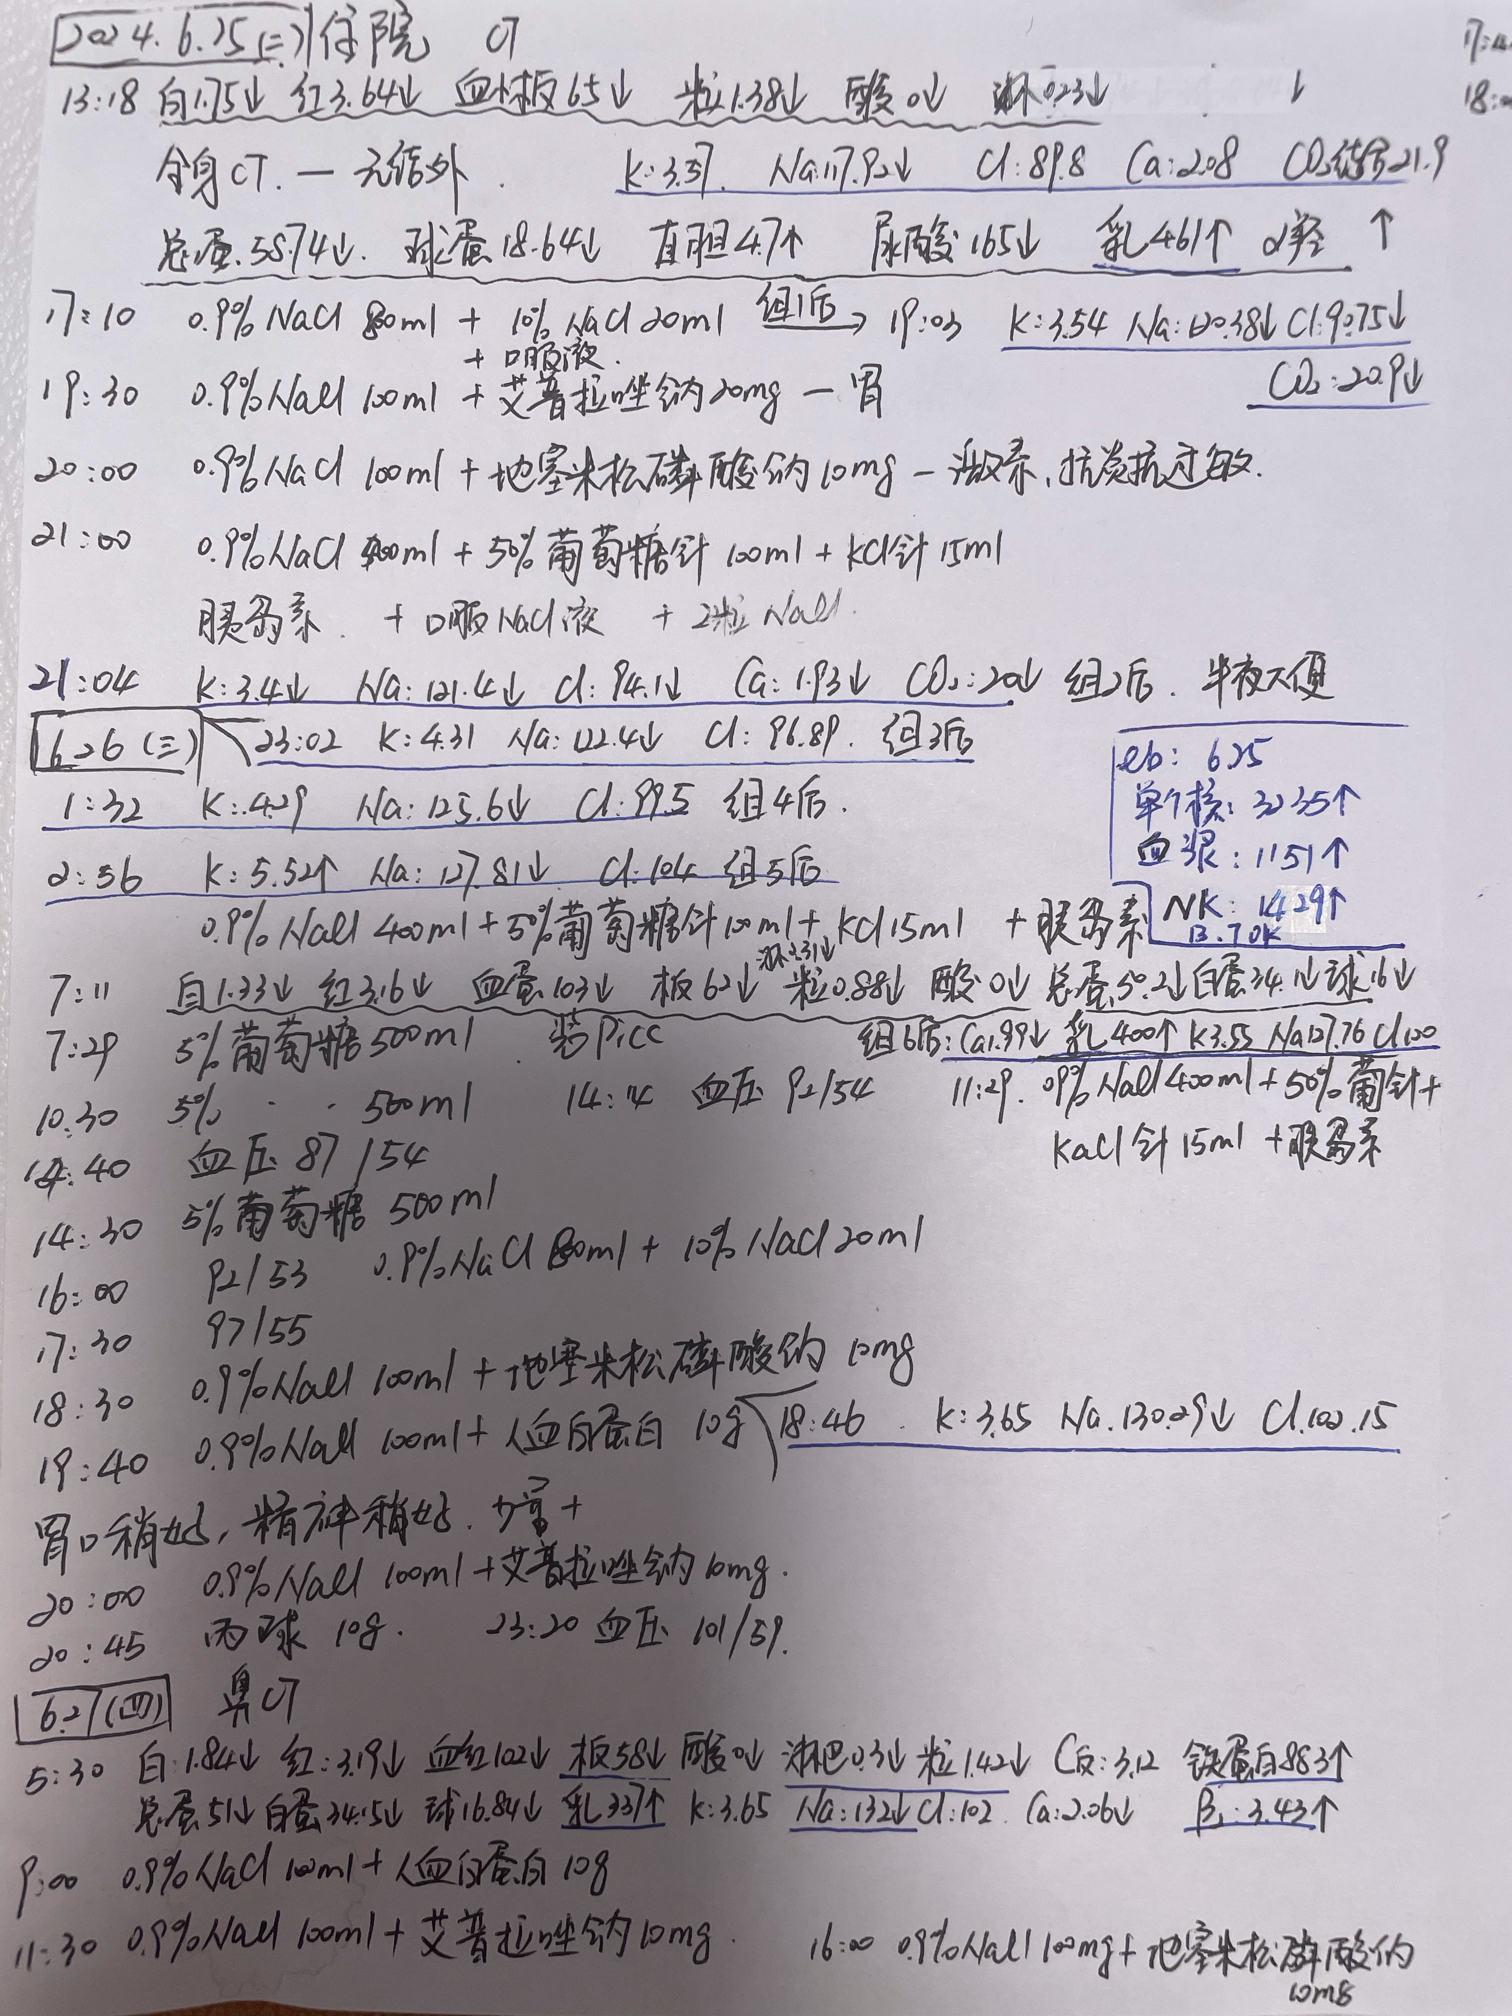 2024.6.25(二) 住院 CT
13:18 白1.75↓ 红3.64↓ 血小板65↓ 粒1.38↓ 酸0↓ 淋0.23↓ ↓
全身CT. — 无结外. K:3.57. Na:117.92↓ Cl:89.8 Ca:2.08 CO₂结合21.9
总蛋.58.74↓. 球蛋18.64↓ 直胆4.7↑ 尿酸165↓ 乳461↑ α羟 ↑
17:10 0.9% NaCl 80ml + 10% NaCl 20ml 组1后→ 19:03 K:3.54 Na:120.38↓ Cl:90.75↓
+ 口服液. CO₂:20.9↓
19:30 0.9% NaCl 100ml + 艾普拉唑钠20mg — 胃
20:00 0.9% NaCl 100ml + 地塞米松磷酸钠10mg — 激素,抗炎抗过敏.
21:00 0.9% NaCl 400ml + 50%葡萄糖针 100ml + KCl针15ml
胰岛素. + 口服NaCl液 + 2粒 NaCl.
21:04 K:3.4↓ Na:121.4↓ Cl:94.1↓ Ca:1.93↓ CO₂:20↓ 组2后. 半夜大便
6.26(三) 23:02 K:4.31 Na:122.4↓ Cl:96.89. 组3后
eb: 6.25
单个核: 3235↑
血浆: 1151↑
NK: 1429↑
B.T OK
1:32 K:4.29 Na:125.6↓ Cl:99.5 组4后.
2:56 K:5.52↑ Na:127.81↓ Cl:104 组5后
0.9% NaCl 400ml + 50%葡萄糖针100ml + KCl 15ml + 胰岛素
7:11 白1.33↓ 红3.16↓ 血蛋103↓ 板62↓ 粒0.88↓ 酸0↓ 总蛋50.2↓ 白蛋34.1↓ 球16↓
7:29 5%葡萄糖500ml. 装Picc 组6后:Ca1.99↓ 乳400↑ K3.55 Na127.76 Cl100
10:30 5% · · 500ml 14:14 血压 92/54 11:29. 0.9% NaCl 400ml + 50%葡针+
KaCl针15ml + 胰岛素
14:40 血压 87/54
14:30 5%葡萄糖 500ml
16:00 92/53 0.9% NaCl 80ml + 10% NaCl 20ml
17:30 97/55
18:30 0.9% NaCl 100ml + 地塞米松磷酸钠 10mg
19:40 0.9% NaCl 100ml + 人血白蛋白 10g 18:46. K:3.65 Na.130.29↓ Cl.102.15
胃口稍好, 精神稍好.
20:00 0.9% NaCl 100ml + 艾普拉唑钠10mg.
20:45 丙球 10g. 23:20 血压 101/59.
6.27(四) 鼻CT
5:30 白:1.84↓ 红:3.19↓ 血红102↓ 板58↓ 酸0↓ 淋巴0.3↓ 粒1.42↓ C反:3.12 铁蛋白883↑
总蛋51↓ 白蛋34.5↓ 球16.84↓ 乳337↑ K:3.65 Na:132↓ Cl:102. Ca:2.06↓ β₂:3.43↑
9:00 0.9% NaCl 100ml + 人血白蛋白 10g
11:30 0.9% NaCl 100ml + 艾普拉唑钠10mg. 16:00 0.9% NaCl 100mg + 地塞米松磷酸钠
10mg